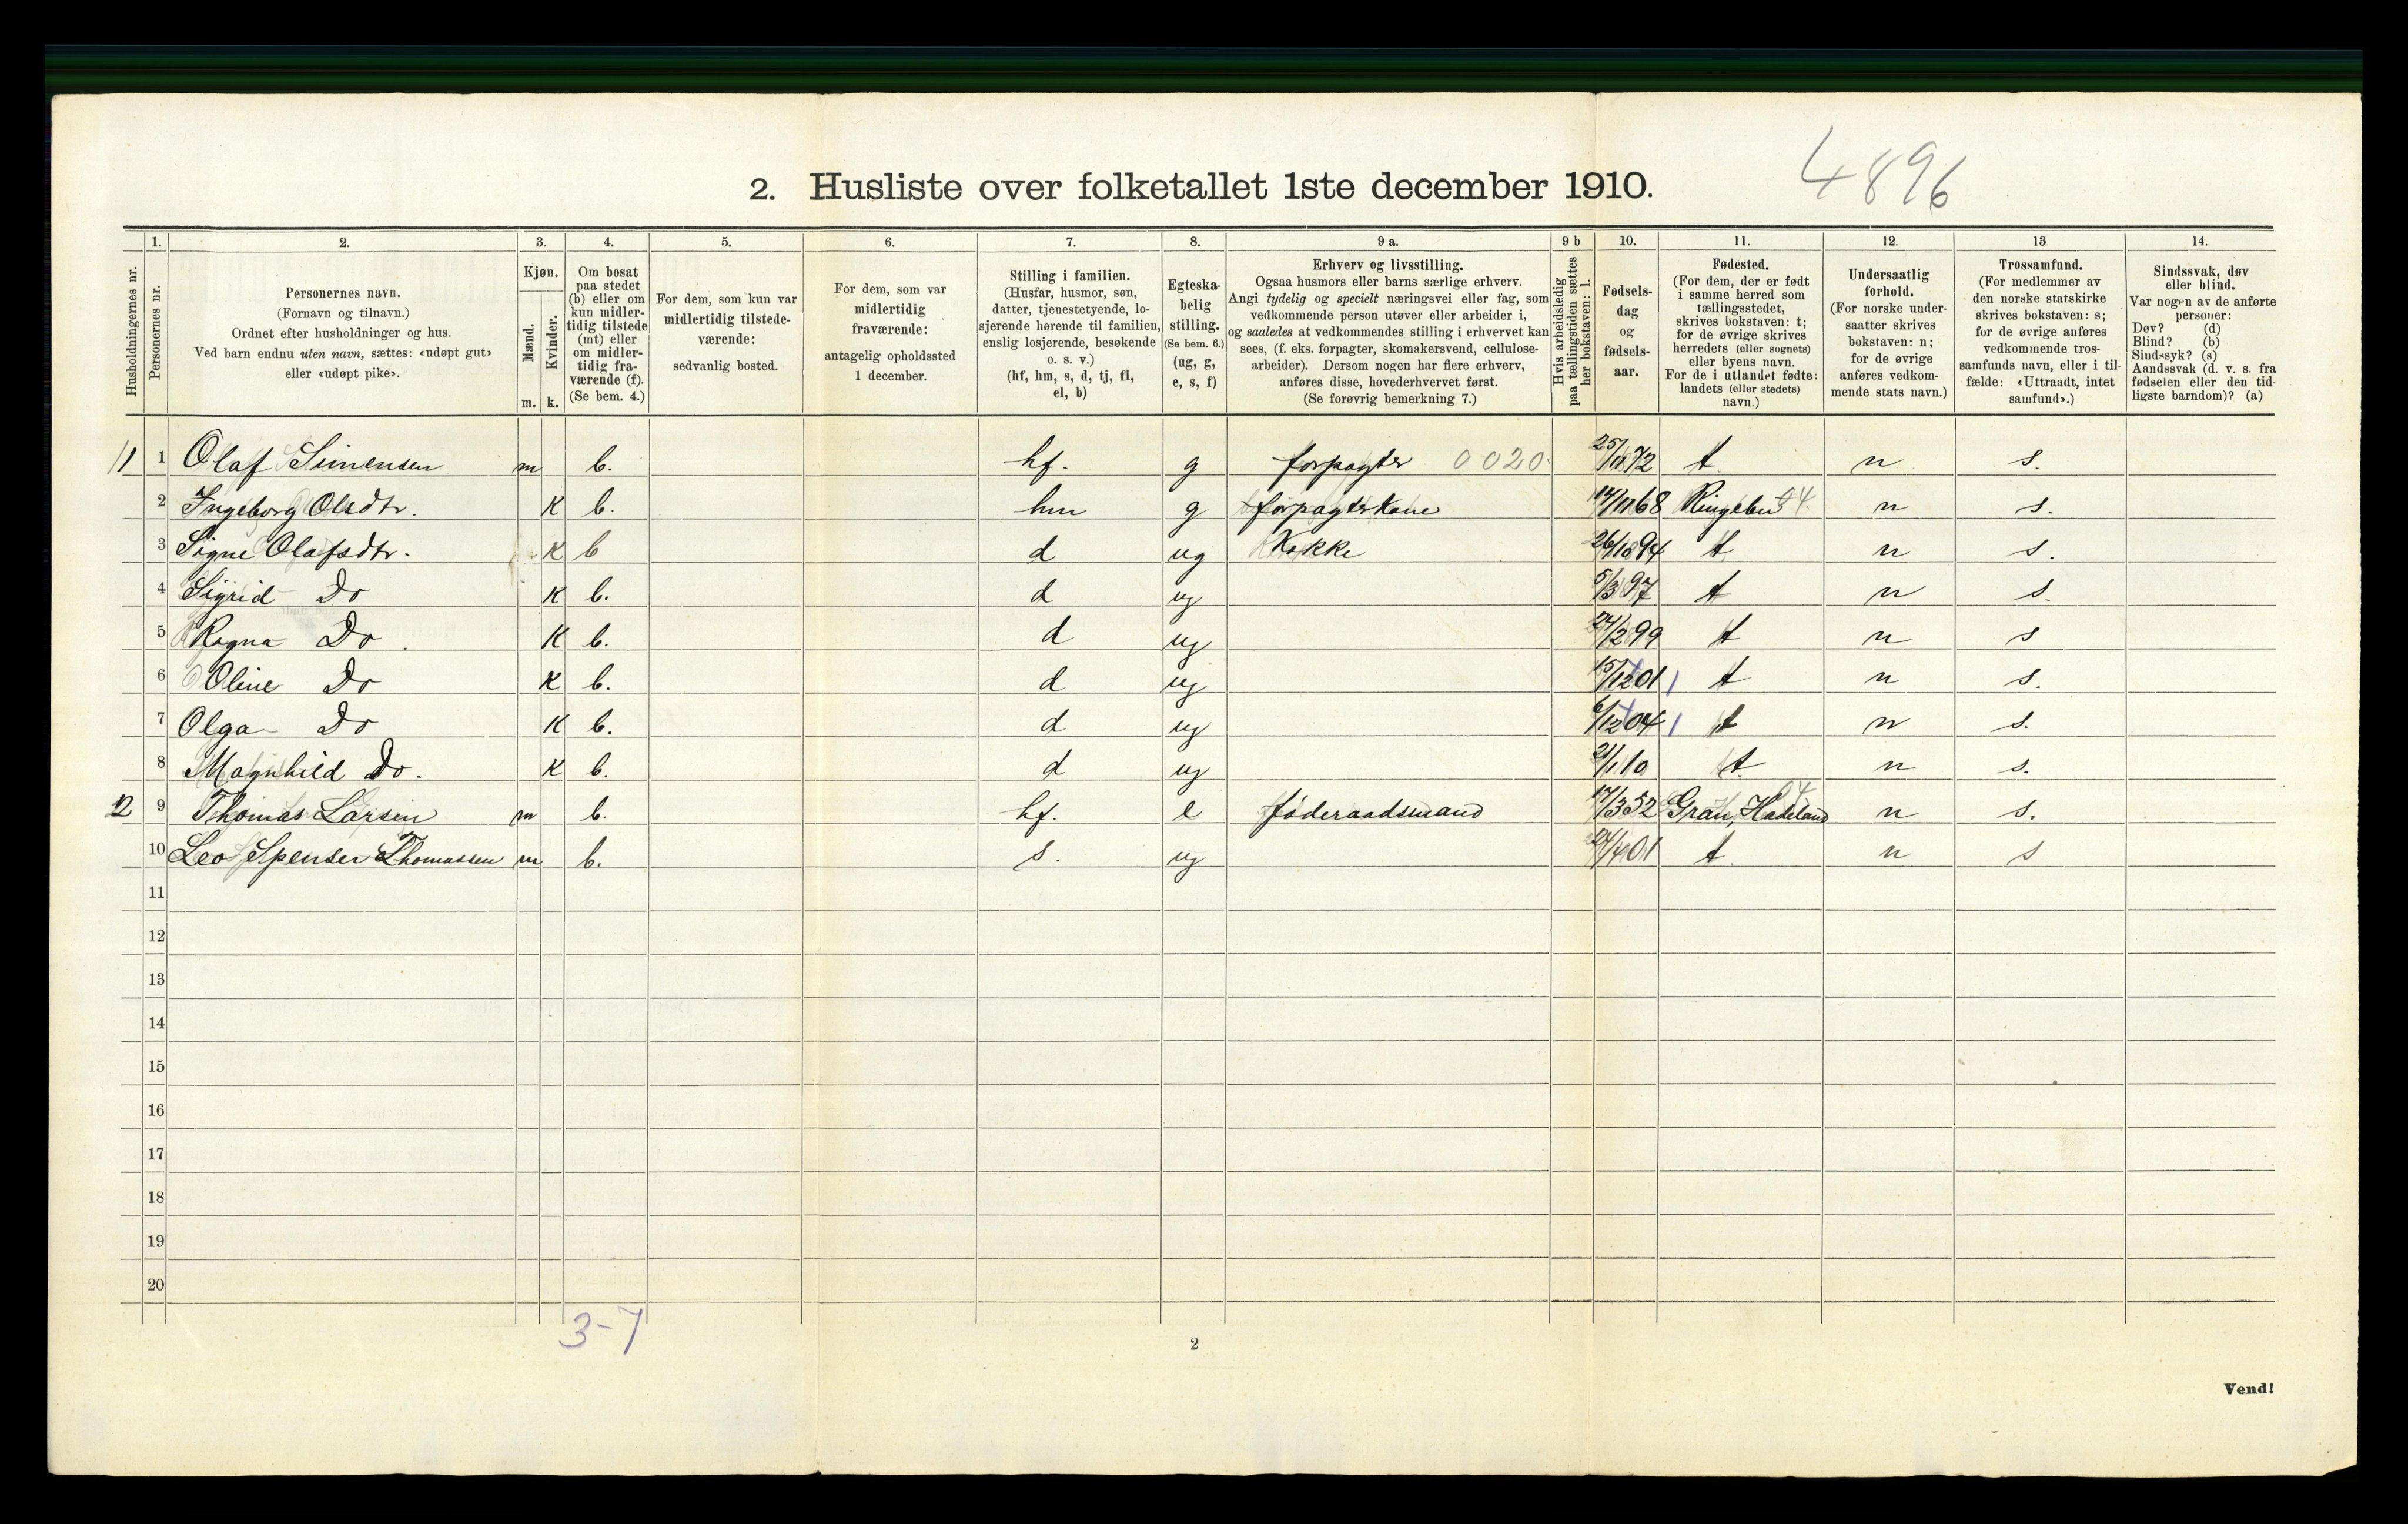 4896
2. Husliste over folketallet 1ste december 1910.
Husholdningernes nr.
1.
Personernes nr.
2.
Personernes navn.
(Fornavn og tilnavn.)
Ordnet efter husholdninger og hus.
Ved barn endnu uten navn, sættes: «udøpt gut»
eller «udøpt pike».
3.
Kjøn.
Mænd.
Kvinder.
m. k.
4.
Om bosat
paa stedet
(b) eller om
kun midler-
tidig tilstede
(mt) eller
om midler-
tidig fra-
værende (f).
(Se bem. 4.)
5.
For dem, som kun var
midlertidig tilstede-
værende:
sedvanlig bosted.
6.
For dem, som var
midlertidig
fraværende:
antagelig opholdssted
1 december.
7.
Stilling i familien.
(Husfar, husmor, søn,
datter, tjenestetyende, lo-
sjerende hørende til familien,
enslig losjerende, besøkende
o. s. v.)
(hf, hm, s, d, tj, fl,
el, b)
8.
Egteska-
belig
stilling.
(Se bem. 6.)
(ug, g,
e, s, f)
9 a.
Erhverv og livsstilling.
Ogsaa husmors eller barns særlige erhverv.
Angi tydelig og specielt næringsvei eller fag, som
vedkommende person utøver eller arbeider i,
og saaledes at vedkommendes stilling i erhvervet kan
sees, (f. eks. forpagter, skomakersvend, cellulose-
arbeider). Dersom nogen har flere erhverv,
anføres disse, hovederhvervet først.
(Se forøvrig bemerkning 7.)
9 b
Hvis arbeidsledig
paa tællingstiden sættes
her bokstaven: l.
10.
Fødsels-
dag
og
fødsels-
aar.
11.
Fødested.
(For dem, der er født
i samme herred som
tællingsstedet,
skrives bokstaven: t;
for de øvrige skrives
herredets (eller sognets)
eller byens navn.
For de i utlandet fødte:
landets (eller stedets)
navn.)
12.
Undersaatlig
forhold.
(For norske under-
saatter skrives
bokstaven: n;
for de øvrige
anføres vedkom-
mende stats navn.)
13
Trossamfund.
(For medlemmer av
den norske statskirke
skrives bokstaven: s;
for de øvrige anføres
vedkommende tros-
samfunds navn, eller i til-
fælde: «Uttraadt, intet
samfund».)
14.
Sindssvak, døv
eller blind.
Var nogen av de anførte
personer:
Døv? (d)
Blind? (b)
Sindssyk? (s)
Aandssvak (d. v. s. fra
fødselen eller den tid-
ligste barndom)? (a)
1 1 Olaf Simensen m b. hf. g forpagter 0020 25/11 72 t n s.
2 Ingeborg Olsdtr. K b. hm g forpagterkone 14/11 68 Ringebu 4 n s.
3 Signe Olafsdtr. K b d ug Kokke 26/10 94 t n s.
4 Sigrid Do K b. d ug 5/3 97 t n s.
5 Ragna Do. K b. d ug 24/2 99 t n s
6 Oline Do K b. d ug 15/12 01 t n s.
7 Olga Do K b. d ug 6/12 04 t n s.
8 Magnhild Do. K b. d ug 21/1 10 t. n s.
2 9 Thomas Larsen m b. hf. e føderaadsmand 17/3 52 Gran, Hadeland n s.
10 Leo Spenser Thomassen m b. s. ug 24/4 01 t n s
11
12
13
14
15
16
17
18
19
20
3-7
2
Vend!